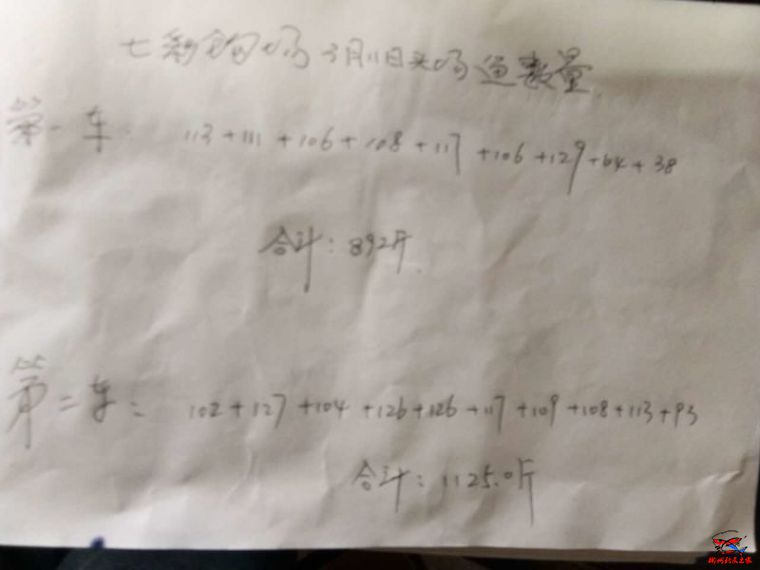 七彩钓场3月11日头场鱼数量.
第一车: 113+111+106+108+117+106+129+64+38
合计: 892斤.
第二车: 102+127+104+126+126+117+109+108+113+93
合计: 1125.0斤